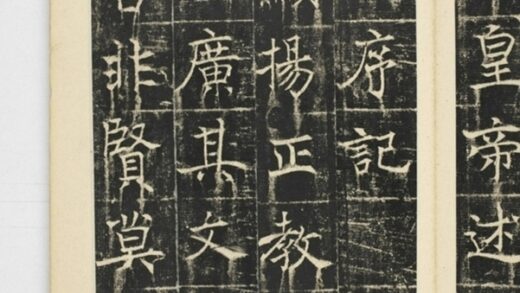 皇帝述
序記
揚正教
廣其文
非賢莫